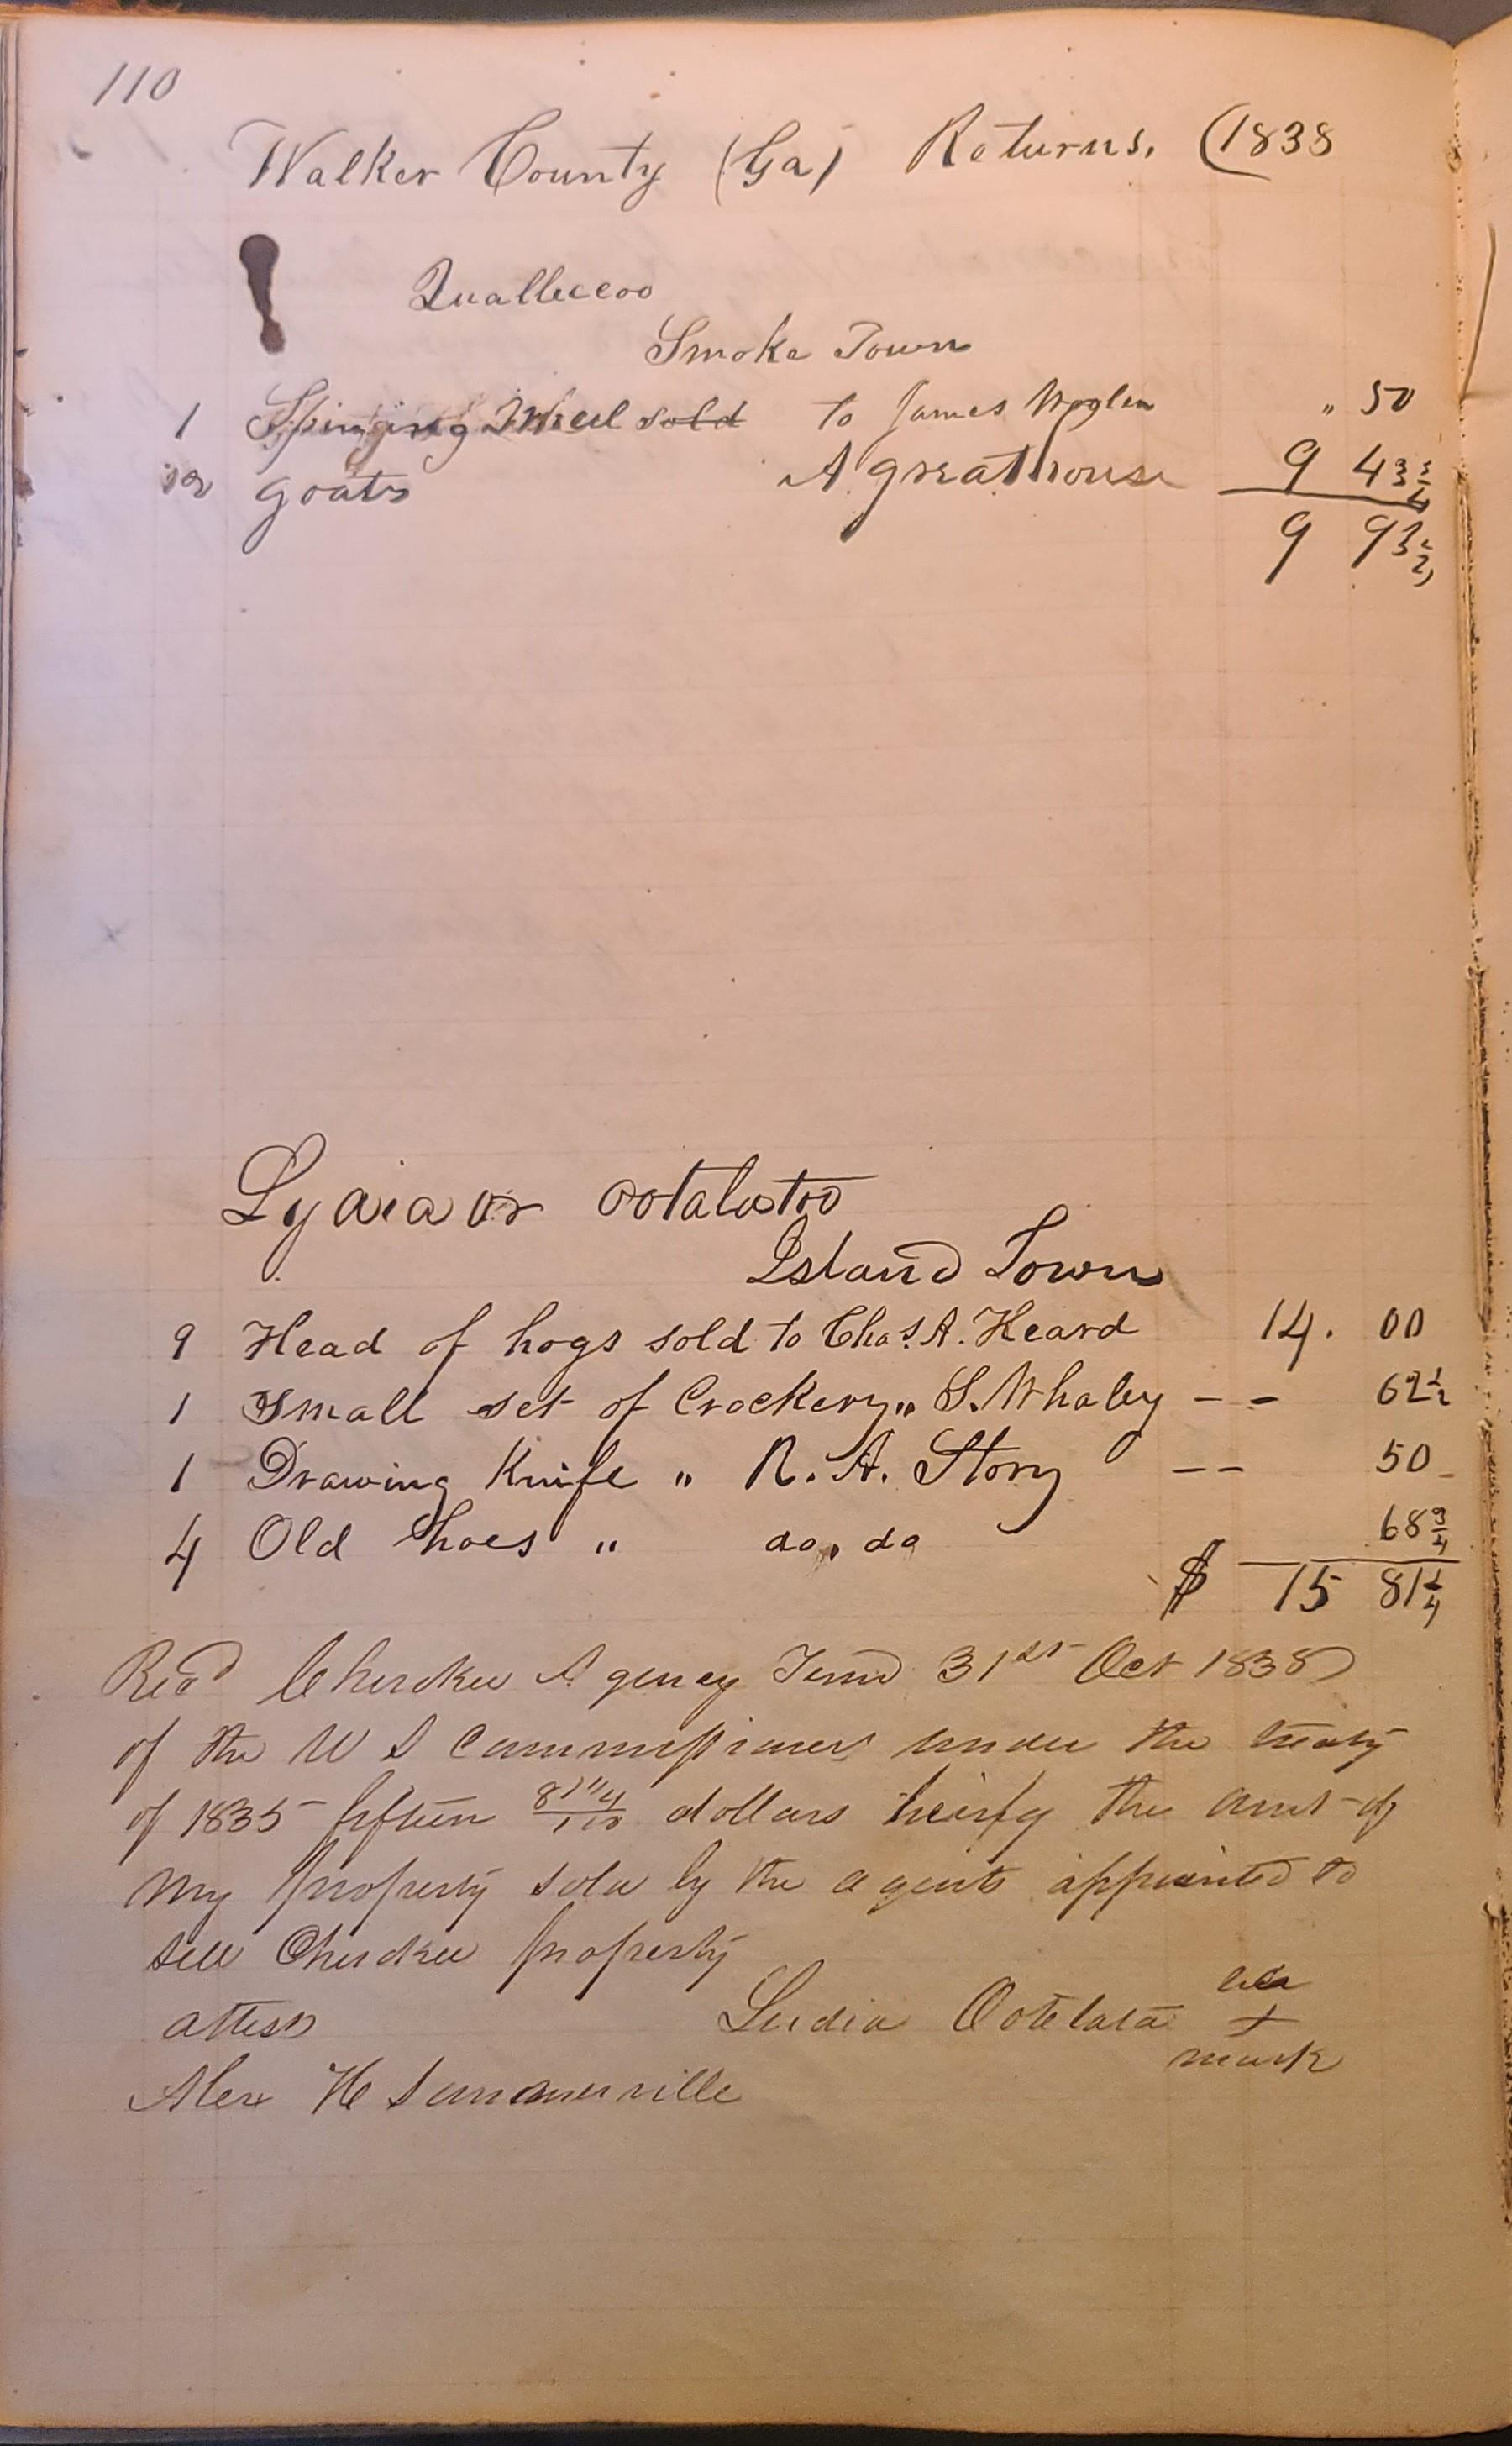 110
Walker County (Ga) Returns. (1838
Qualleceoo
Smoke Town
1 Spinging Wheel sold to James " 50
12 goats A greathouse 9 43
9 93
Lydia or ootalostoo
Island Town
9 Head of hogs sold to Chas. A. Heard 14. 00
1 Small set of Crockery " S. Whaley - - 62 1/2
1 Drawing Knife " R. A. Story -- 50
4 Old hoes " do, do 68 3/4
$ 15 81 1/4
Recd Cherokee Agency Tenn 31st Oct 1838
of the U S Commissioners under the treaty
of 1835 fifteen 81 1/4/100 dollars being the amt of
my property sold by the agents appointed to
sell Cherokee property
attest Ludia Ootelata her
x
mark
Alex H Summerville